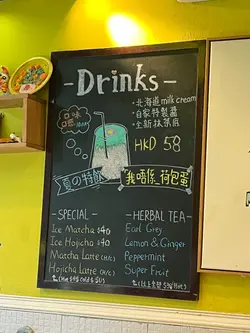 - Drinks -
口味
・北海道 milk cream
・自家特製醬
・全新抹茶底
HKD 58
夏の特飲
我唔係荷包蛋
- SPECIAL -
Ice Matcha $40
Ice Hojicha $40
Matcha Latte (H/C)
Hojicha Latte (H/C)
- HERBAL TEA -
Earl Grey
Lemon & Ginger
Peppermint
Super Fruit